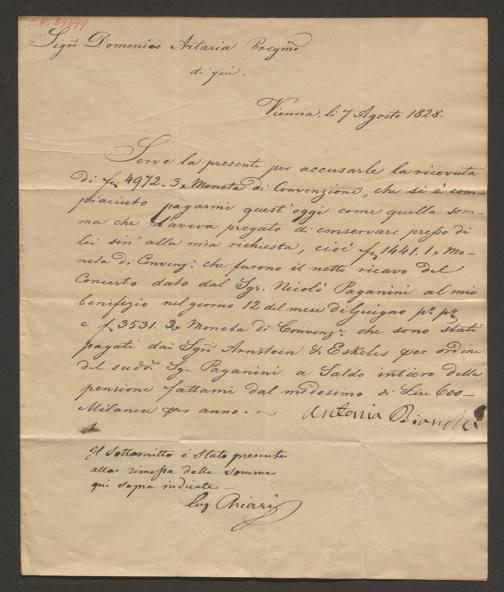 Sigʳ Domenico Artaria Pregmo
di qui.
Vienna. li 7 Agosto 1828.
Serve la presente per accusarle la ricevuta
di f 4972 - 3 x Moneta di Convenzione, che si è com-
piaciuto pagarmi quest'oggi come quella som-
ma che l'aveva pregato di conservare presso di
lei sin' alla mia richiesta, cioè f 1441. 1 x Mo-
neta di Convenz: che furono il netto ricavo del
Concerto dato dal Sgr. Nicolò Paganini al mio
benifizio nel giorno 12 del mese di Giugno po. po
e f 3531. 2 x Moneta di Convenz: che sono stati
pagati dai Sgri Arnstein & Eskeles per ordine
del sudd. Sgr. Paganini a Saldo intiero della
pensione fattami dal medesimo di Lire 600 -
Milanese per anno. -
Antonia Bianchi
Il Sottoscritto è stato presente
alla rimessa delle somme
qui sopra indicate -
Lug Chiari